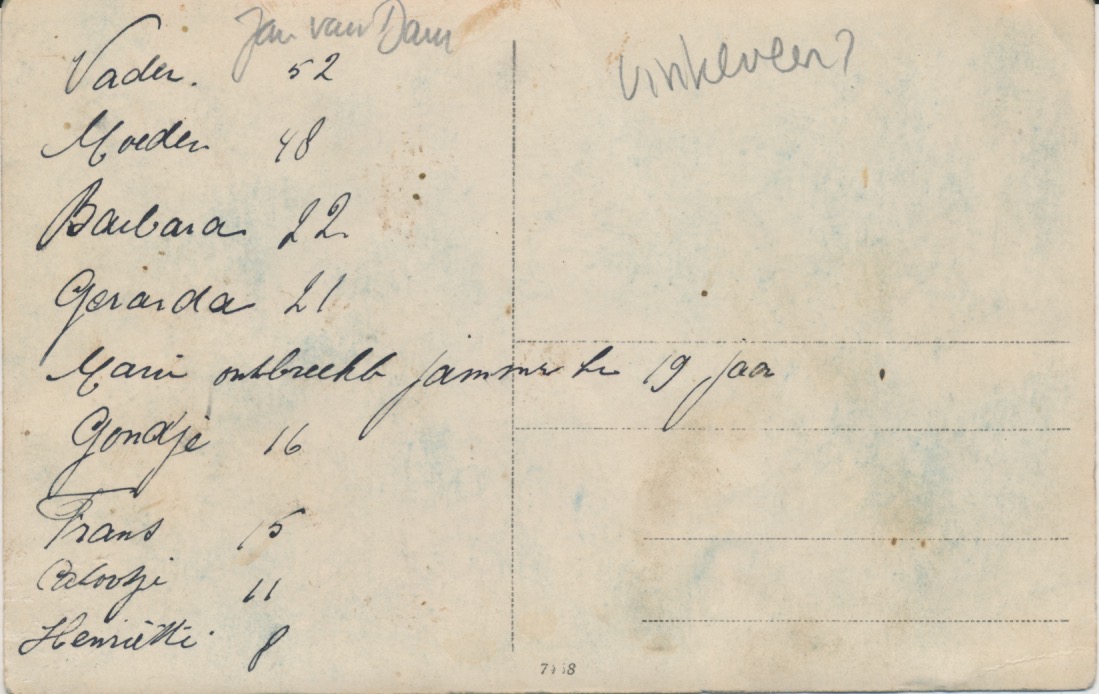 Jan van Dam
Vinkeveen?
Vader. 52
Moeder 48
Barbara 22.
Gerarda 21
Marie ontbreekt jammer 19 jaar
Gondje 16
Frans 15
11
Henriëtte. 8